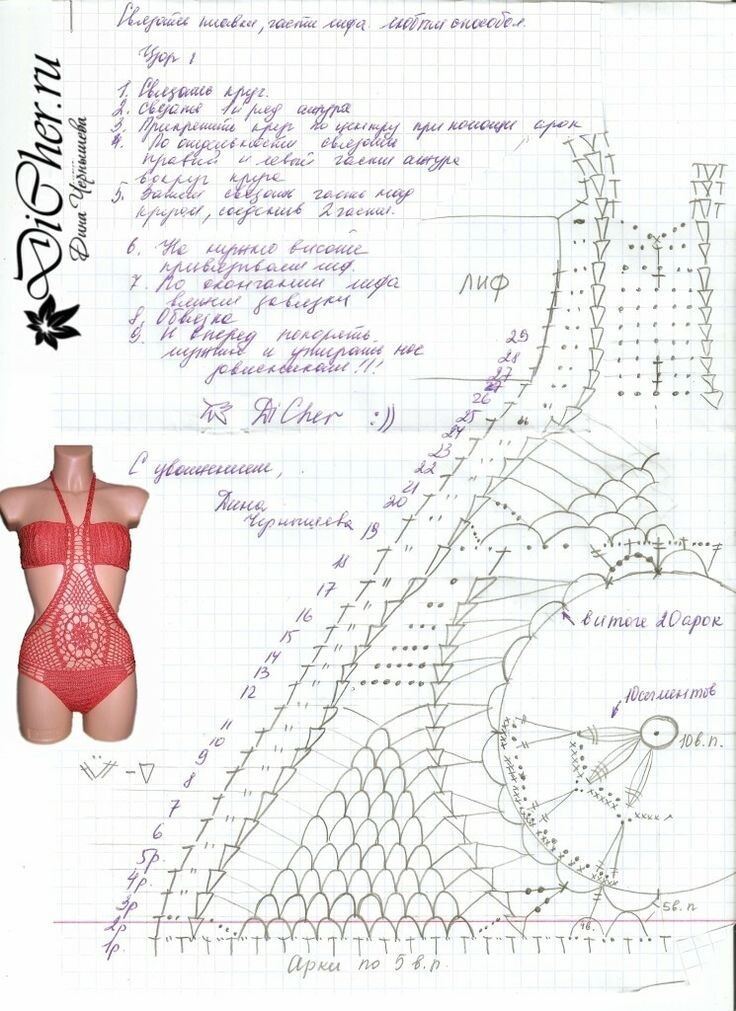 DiCher.ru
Дина Чернышева
Свяжите плавки, части лифа любым способом.
Узор 1
1. Связать круг.
2. Связать 1й ряд ажура
3. Прикрепить круг по центру при помощи арок
4. По отдельности связать
правий и левый части ажура
вокруг круга
5. Затем связать часть над
кругом, соединив 2 части.
6. На нужной высоте
привязываем лиф.
7. По окончании лифа
вяжем завязки
8. Обвязка
9. И вперед покорять
мужчин и утирать нос
завистникам!!!
DiCher :))
С уважением,
Дина
Чернышева
ЛИФ
29
28
27
27
26
25
24
23
22
21
20
19
18
17
16
15
14
13
12
11
10
9
8
7
6
5р.
4р.
3р
2р
1р.
в итоге 20 арок
10 сегментов
10 в.п.
5 в.п
4в.
Арки по 5 в.п.